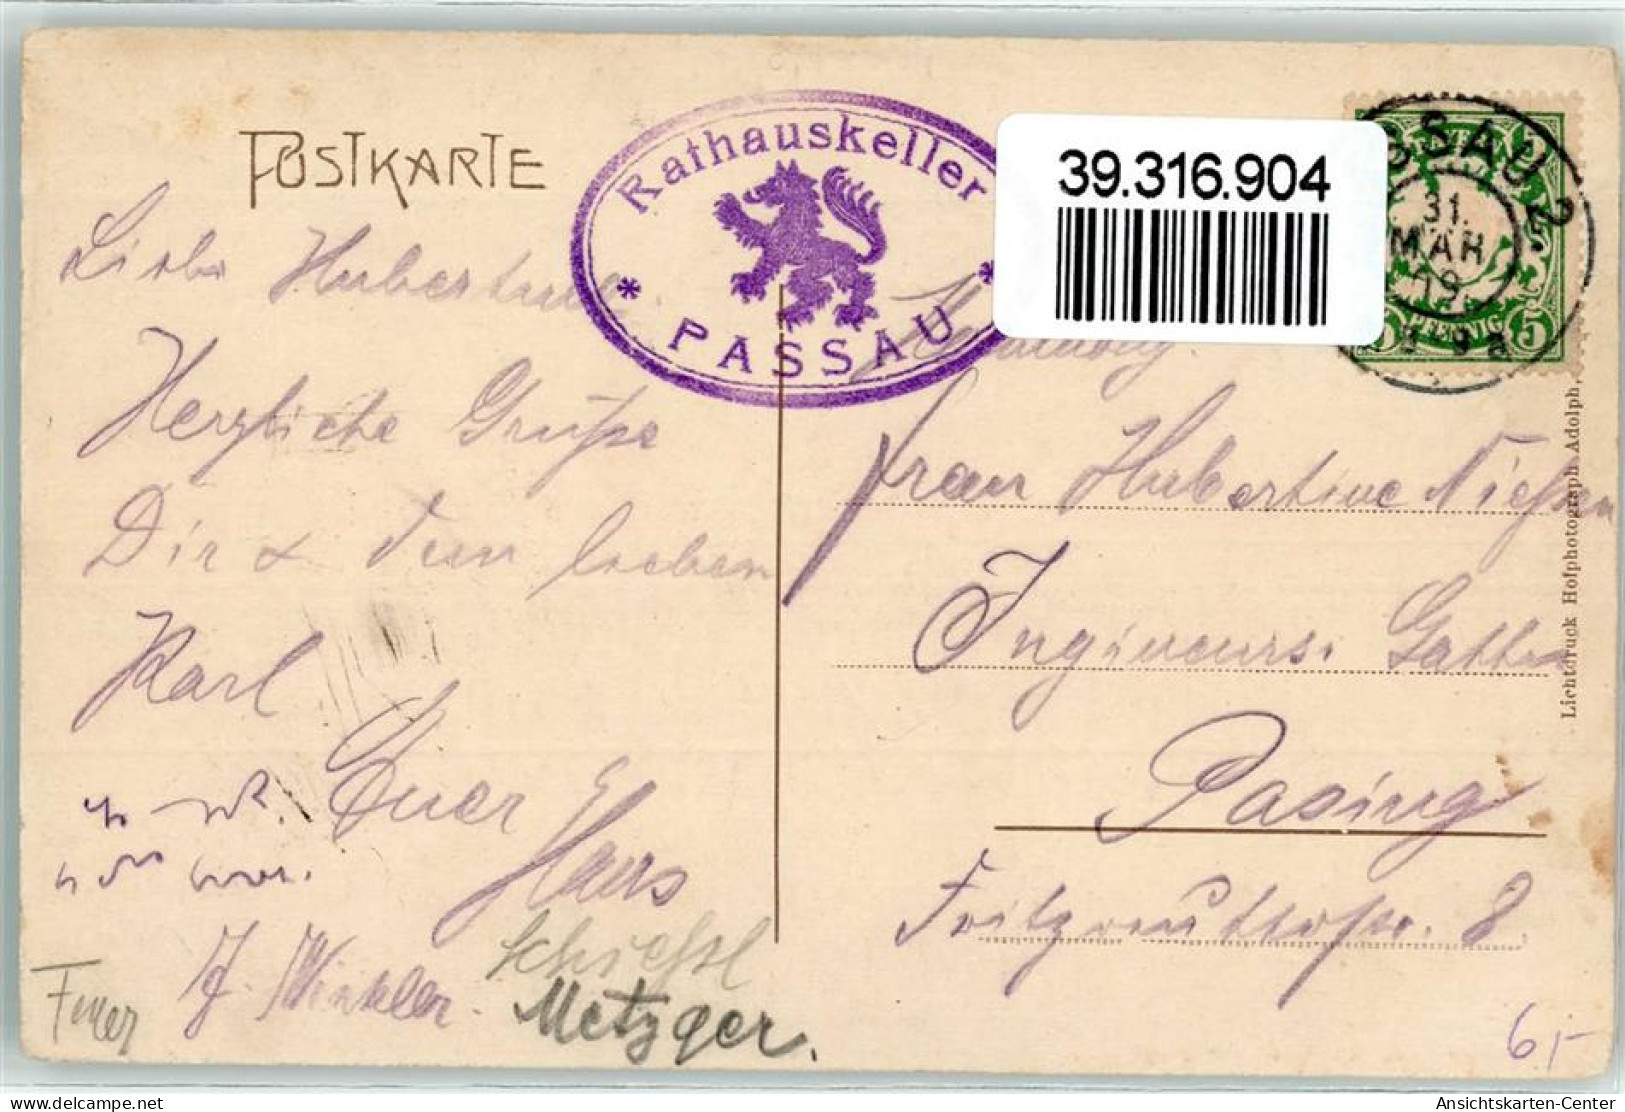 POSTKARTE
Rathauskeller
* PASSAU *
39.316.904
PASSAU 2.
31.
MÄR
09
PFENNIG 5
Liebe Hubertine
Herzliche Grüße
Dir & dem lieben
Karl
Euer
Hans
J. Winkler.
Schießl
Metzger.
Frau Hubertine Nießen
Ingenieurs. Gattin
Pasing
Fritzreuterstr. 8.
Lichtdruck Hofphotograph Adolph,
6,-
Ansichtskarten-Center